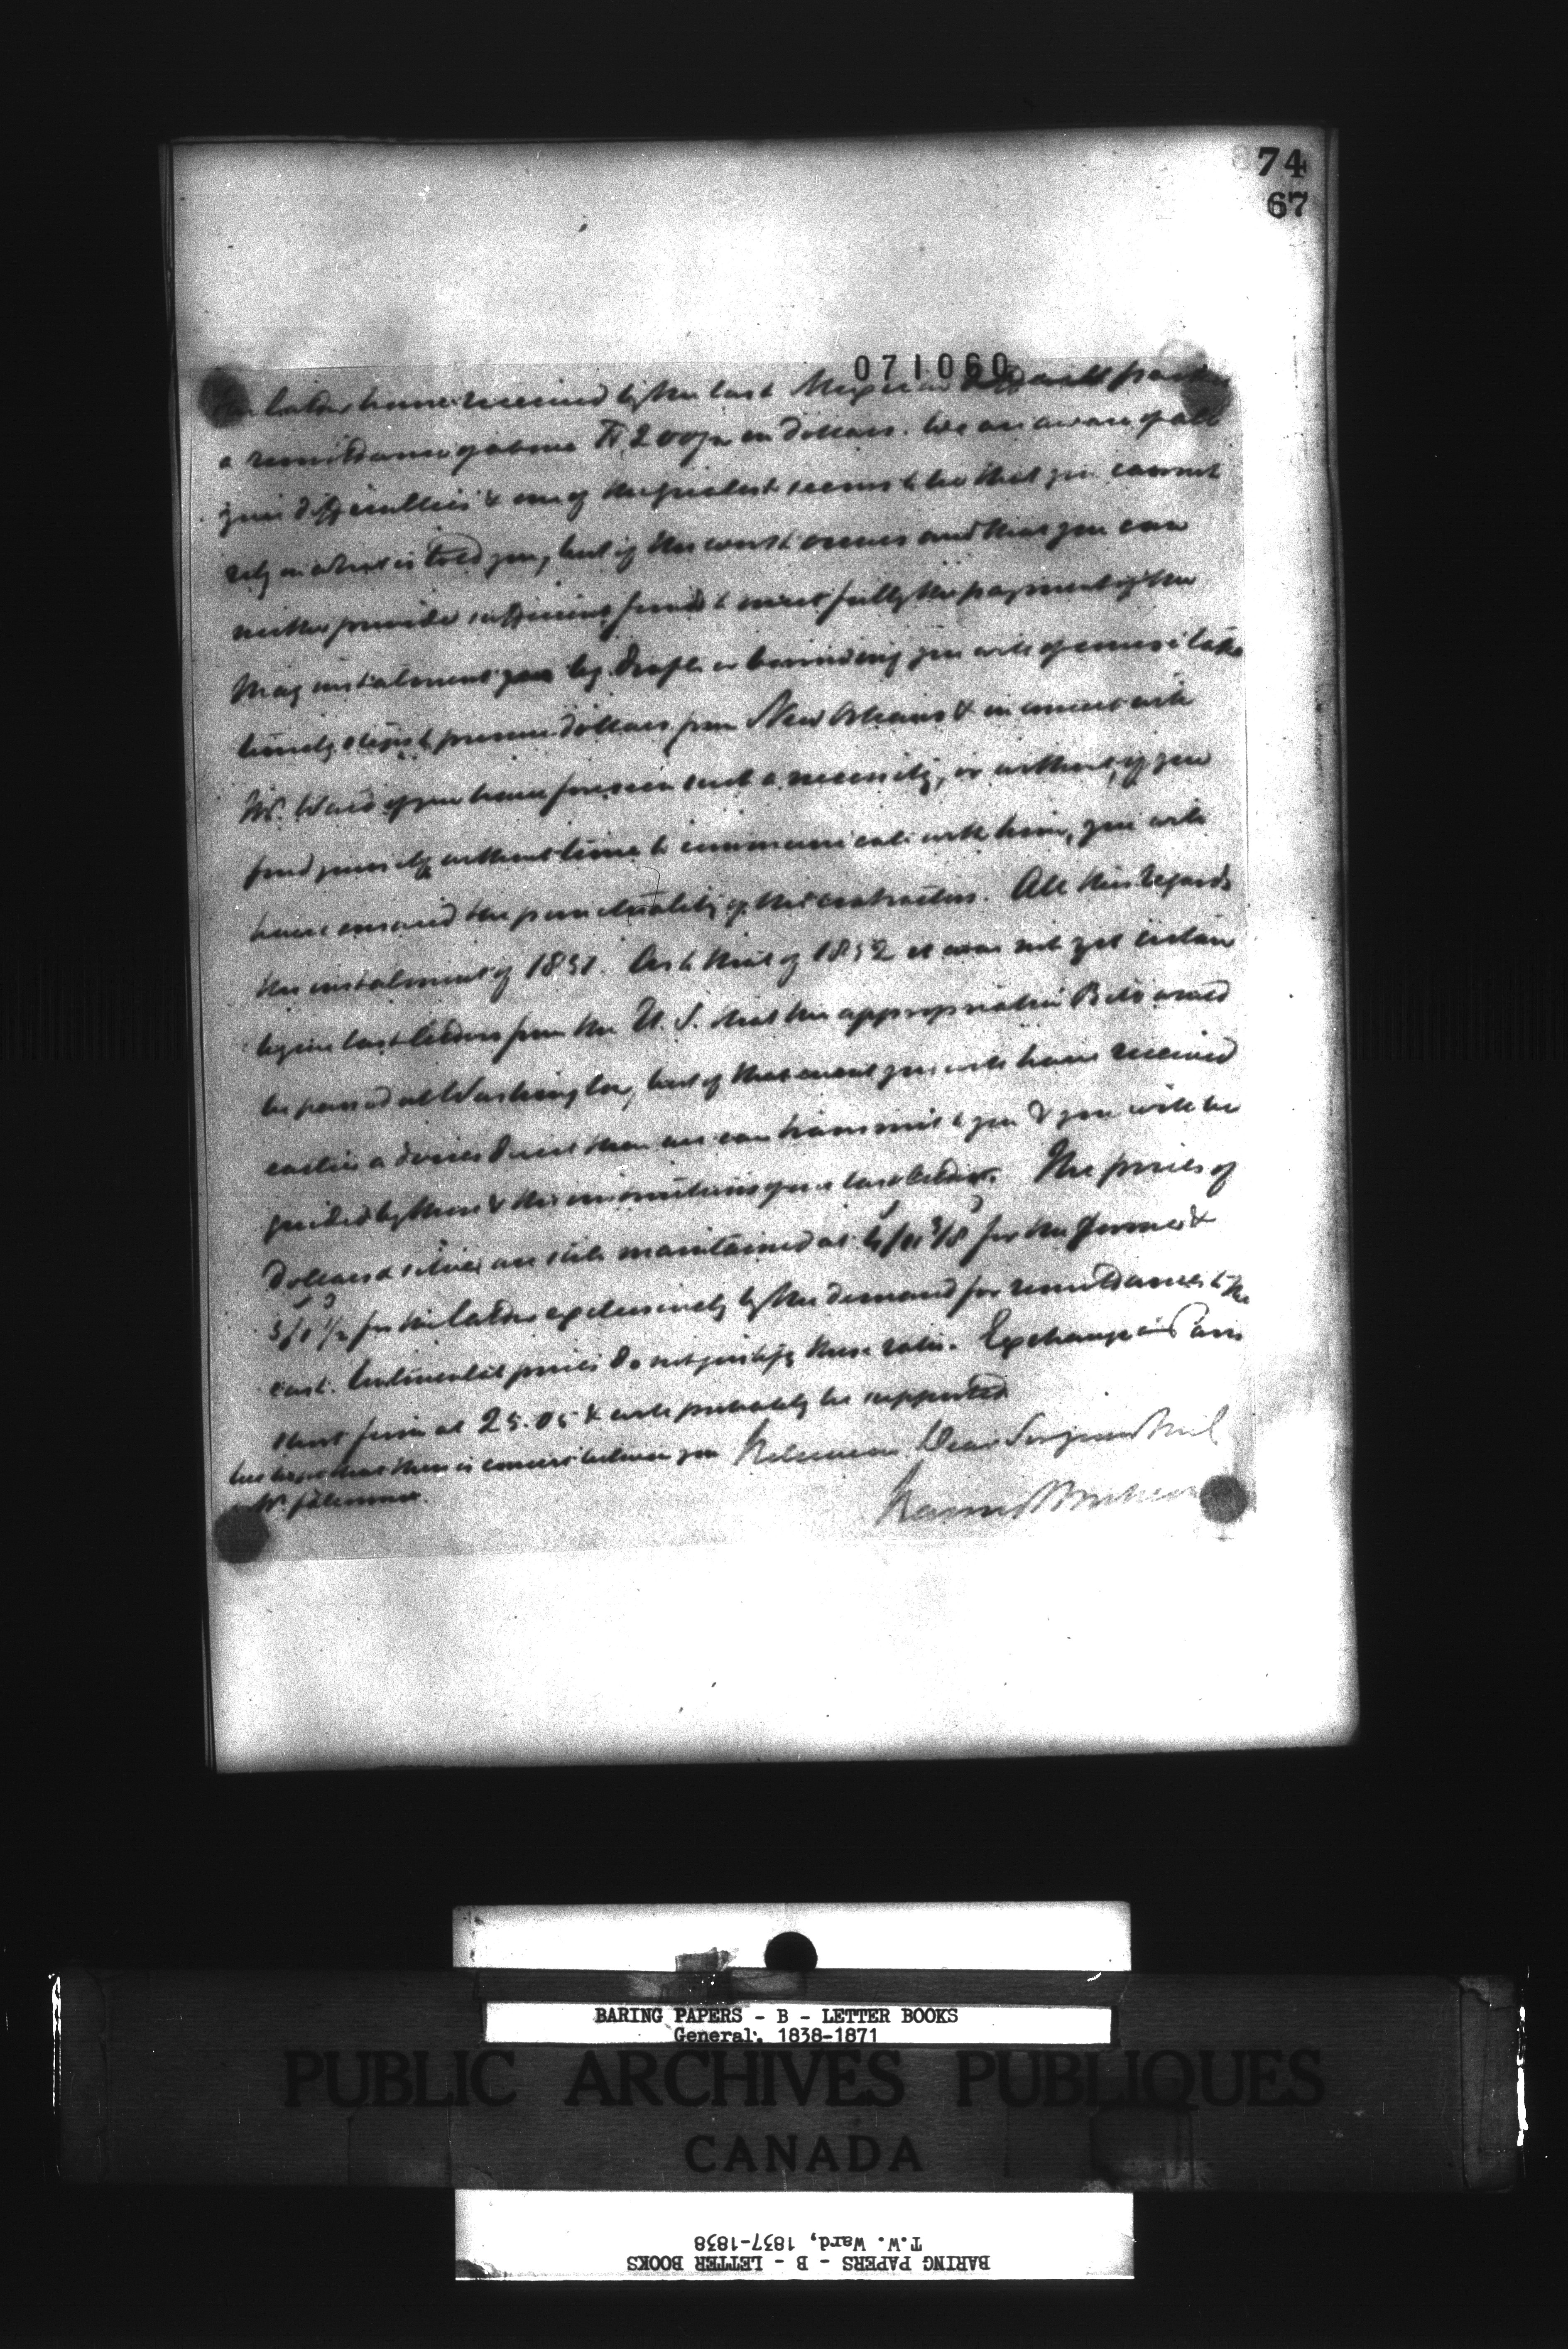 74
67
071060
latter have received by the last Mexican packet
a remittance of above in dollars. We are aware of all
your difficulties & one of the greatest seems to be that you cannot
rely on what is told you, but if the worst occurs and that you can
neither provide sufficient funds to meet fully the payment of the
May instalment by drafts or borrowing you will of course take
timely steps to procure dollars from New Orleans & in concert with
Mr. Ward if you have foreseen such a necessity, or without, if you
find yourself without time to communicate with him, you will
have ensured the punctuality of the contractors. All this regards
the instalment of 1851. As to that of 1852 it was not yet certain
by our last letters from the U. S. that the appropriation Bill would
be passed at Washington, but of that event you will have received
earlier advices direct than we can transmit to you & you will be
guided by these & the instructions of our last letter. The prices of
Dollars & silver are still maintained at 4/11 3/8 for the former &
5/1 1/2 for the latter exclusively by the demand for remittances to the
east. Continental prices do not justify these rates. Exchange on Paris
short firm at 25.05 & will probably be supported
We hope that there is concert between you
& Mr.
BARING PAPERS - B - LETTER BOOKS
General, 1838-1871
PUBLIC ARCHIVES PUBLIQUES
CANADA
T.W. Ward, 1837-1838
BARING PAPERS - B - LETTER BOOKS